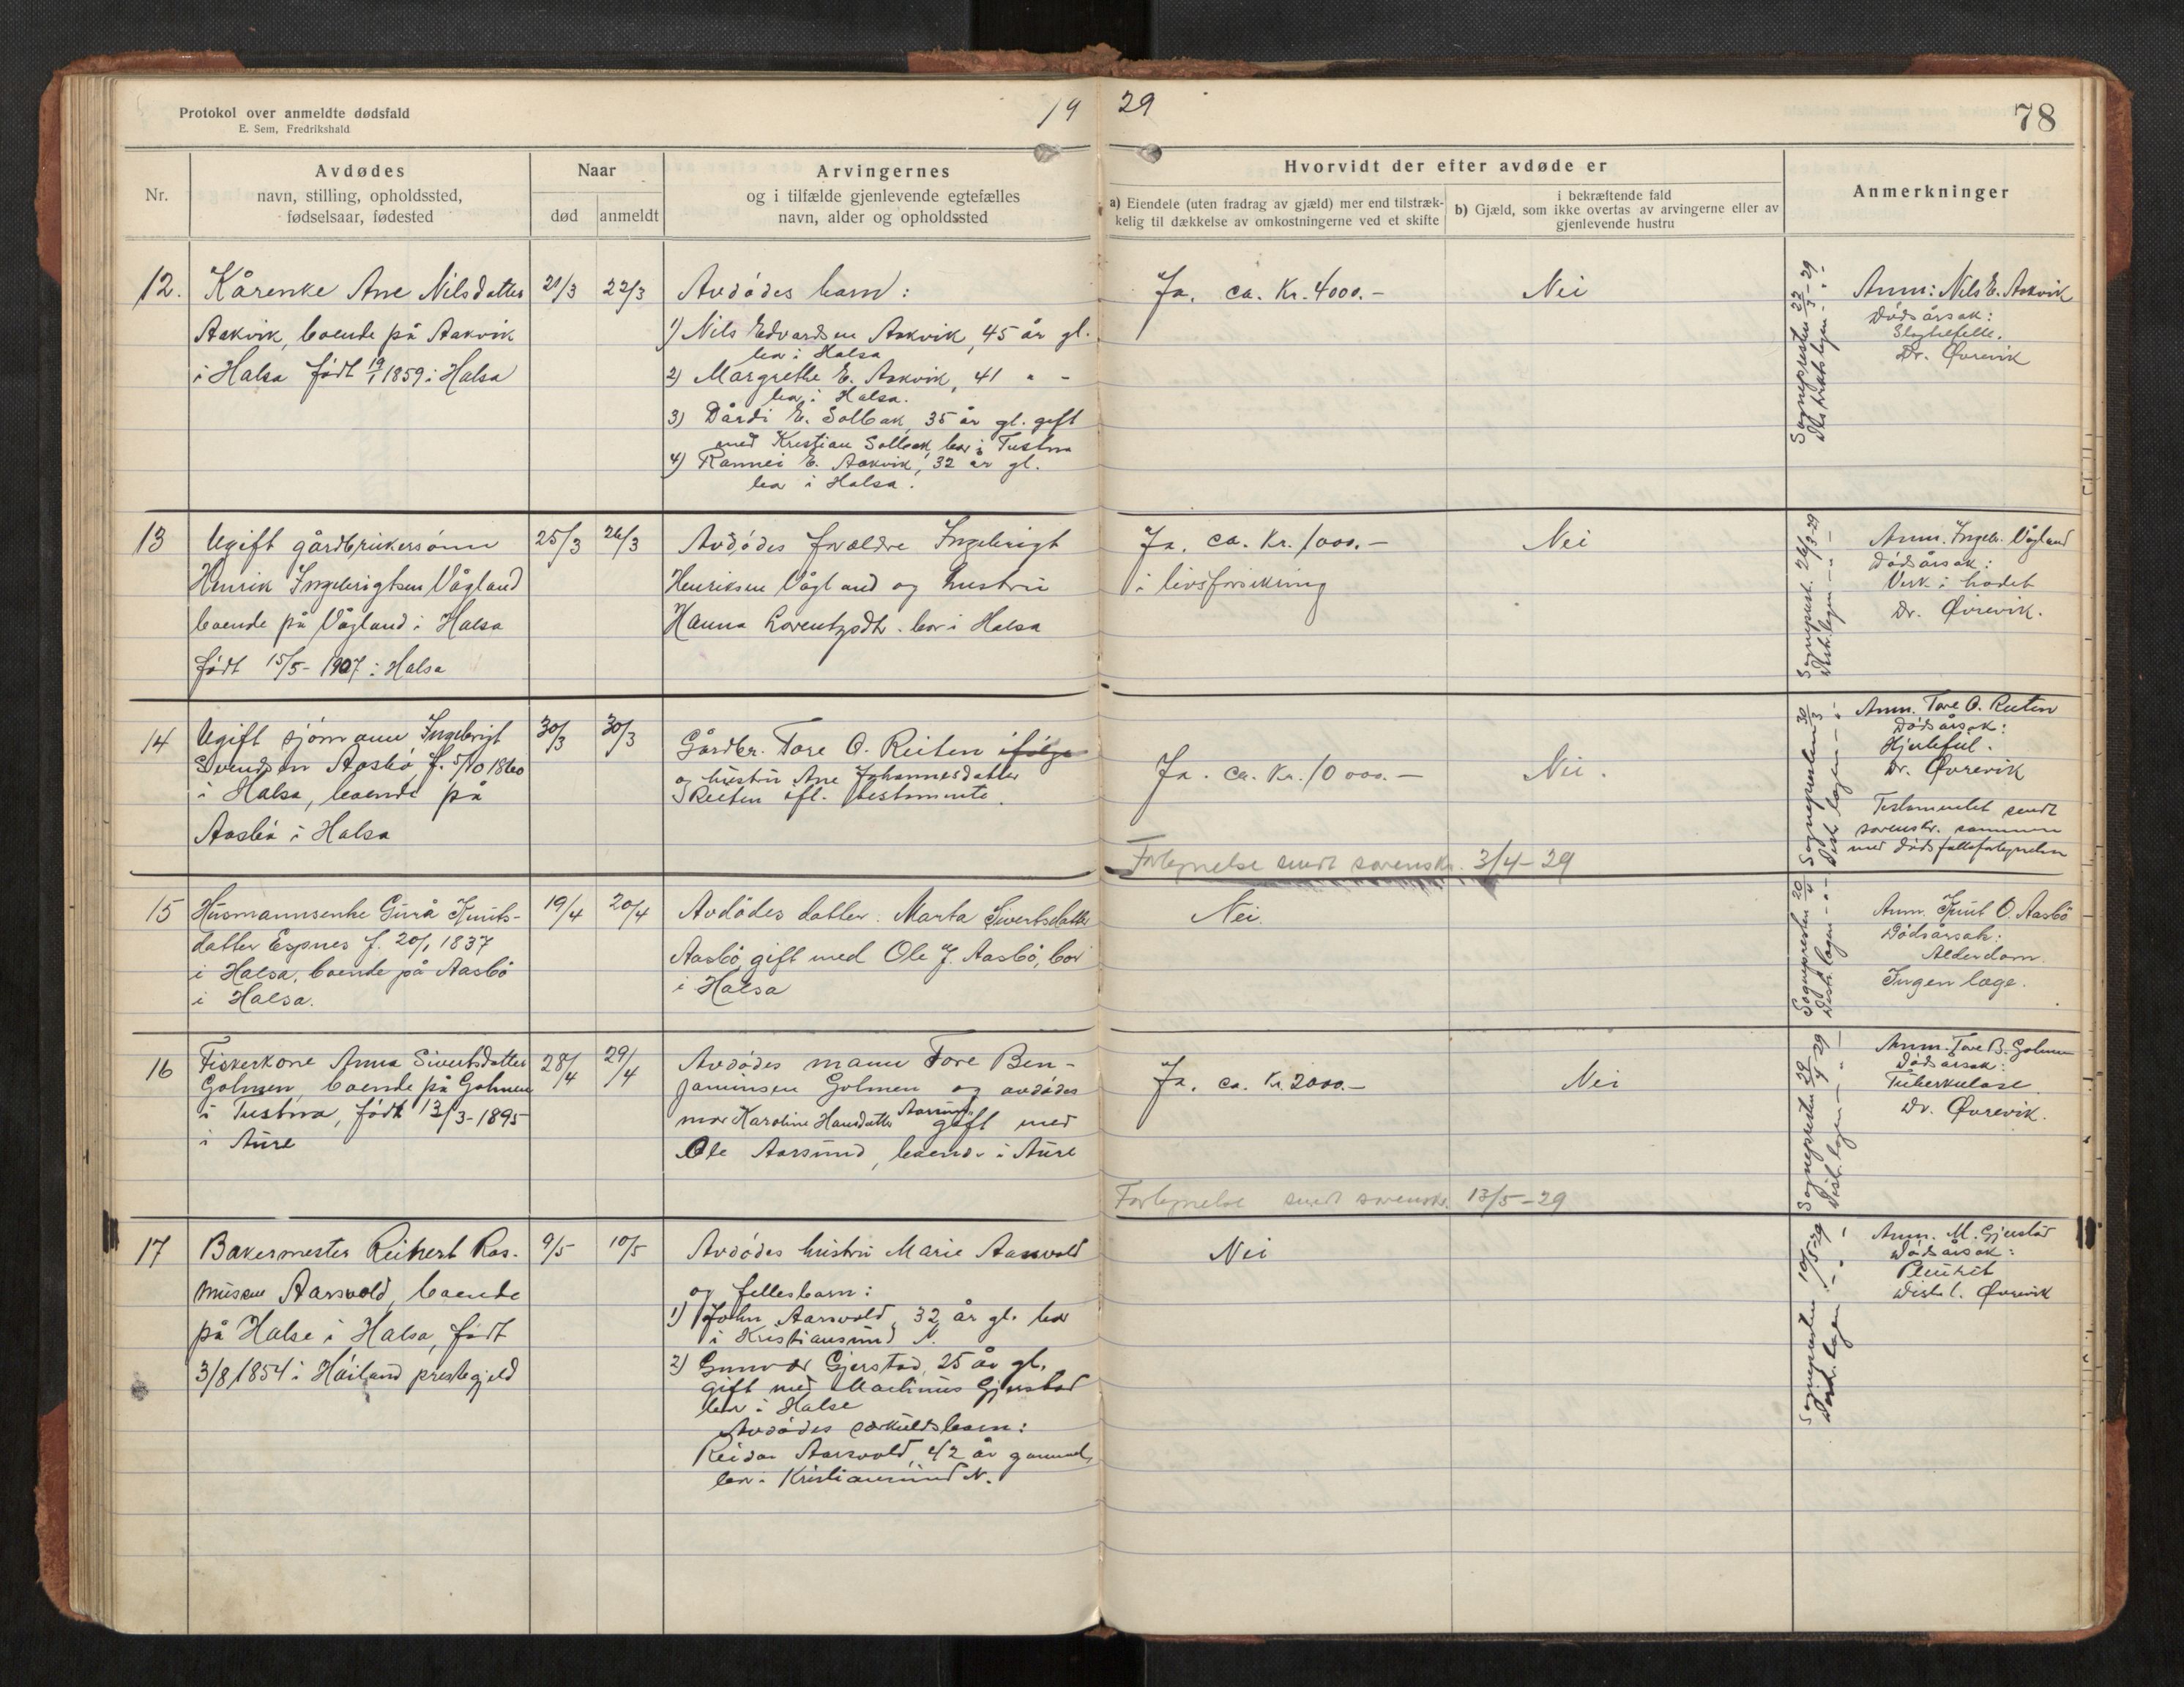 Protokol over anmeldte dødsfald
E. Sem, Fredrikshald
19 29
78
Nr.
Avdødes
navn, stilling, opholdssted,
fødselsaar, fødested
Naar
død
anmeldt
Arvingernes
og i tilfælde gjenlevende egtefælles
navn, alder og opholdssted
Hvorvidt der efter avdøde er
a) Eiendele (uten fradrag av gjæld) mer end tilstræk-
kelig til dækkelse av omkostningerne ved et skifte
i bekræftende fald
b) Gjæld, som ikke overtas av arvingerne eller av
gjenlevende hustru
Anmerkninger
12.
Kårenke Ane Nilsdatter
Aakvik, boende på Aakvik
i Halsa født 19/1 1859 i Halsa
21/3
22/3
Avdødes barn:
1) Nils Edvardsen Aakvik, 45 år gl.
bor i Halsa
2) Margrethe E. Aakvik, 41 " -
bor i Halsa.
3) Dårdi E. Solbak, 35 år gl. gift
med Kristian Solbak, bor i Tustna
4) Rannei E. Aakvik, 32 år gl.
bor i Halsa.
Ja. ca. Kr. 4000.-
Nei
Sognepresten 22/3-29
Distriktslægen - " -
Anm: Nils E. Aakvik
Dødsårsak:
Slagtilfelle.
Dr. Øvrevik
13
Ugift gårdbrukersønn
Henrik Ingebrigtsen Vågland
boende på Vågland i Halsa
født 15/5-1907 i Halsa
25/3
26/3
Avdødes forældre Ingebrigt
Henriksen Vågland og hustru
Hanna Lorentzdtr. bor i Halsa
Ja. ca. Kr. 1000.-
i livsforsikring
Nei
Sogneprest. 26/3-29
Distr.lægen - " -
Anm. Ingebr. Vågland
Dødsårsak:
Verk i hodet
Dr. Øvrevik.
14
Ugift sjømann Ingebrigt
Svendsen Aasbø f. 5/10 1860
i Halsa, boende på
Aasbø i Halsa
30/3
30/3
Gårdbr. Tore O. Reiten ifølge
og hustru Ane Johannesdatter
Reiten ifl. testamente.
Ja. ca. Kr. 10 000.-
Nei.
Forlegnelse sendt sorenskr. 3/4-29
Sognepresten 30/3
Distr. lægen - " -
Anm. Tore O. Reiten
Dødsårsak:
Hjertefeil.
Dr. Øvrevik
Testamentet sendt
sorenskr. sammen
med dødsfallsforlegnelsen
15
Husmannsenke Gurå Knuts-
datter Espnes f. 20/1 1837
i Halsa, boende på Aasbø
i Halsa.
19/4
20/4
Avdødes datter. Marta Sivertsdatter
Aasbø, gift med Ole J. Aasbø, bor
i Halsa
Nei.
Sognepresten 20/4
Distr. lægen - " -
Anm. Knut O. Aasbø
Dødsårsak:
Alderdom.
Ingen læge.
16
Fiskerkone Anna Sivertsdatter
Golmen, boende på Golmen
i Tustna, født 13/3-1895
i Aure
28/4
29/4
Avdødes mann Tore Ben-
jaminsen Golmen og avdødes
mor Karoline Hansdatter Aarsund gift med
Ole Aarsund, boende i Aure
Ja. ca. Kr. 2000.-
Nei
Forlegnelse sendt sorenskr. 13/5-29
Sognepresten 29/4-29
Distr. lægen - " -
Anm. Tore B. Golmen
Dødsårsak:
Tuberkulose
Dr. Øvrevik.
17
Bakermester Reinert Ras-
mussen Aarsvold, boende
på Halse i Halsa, født
3/8 1854 i Høiland prestegjeld
9/5
10/5
Avdødes hustru Marie Aarsvold
og fellesbarn:
1) John Aarsvold, 32 år gl. bor
i Kristiansund N.
2) Gunvor Gjerstad, 25 år gl.
gift med Martinus Gjerstad
bor i Halse
Avdødes særkuldsbarn:
Reidar Aarsvold, 42 år gammel,
bor i Kristiansund N.
Nei
Sognepresten 10/5-29
Distr. lægen - " -
Anm. M. Gjerstad
Dødsårsak:
Pleurit
Distr.l. Øvrevik